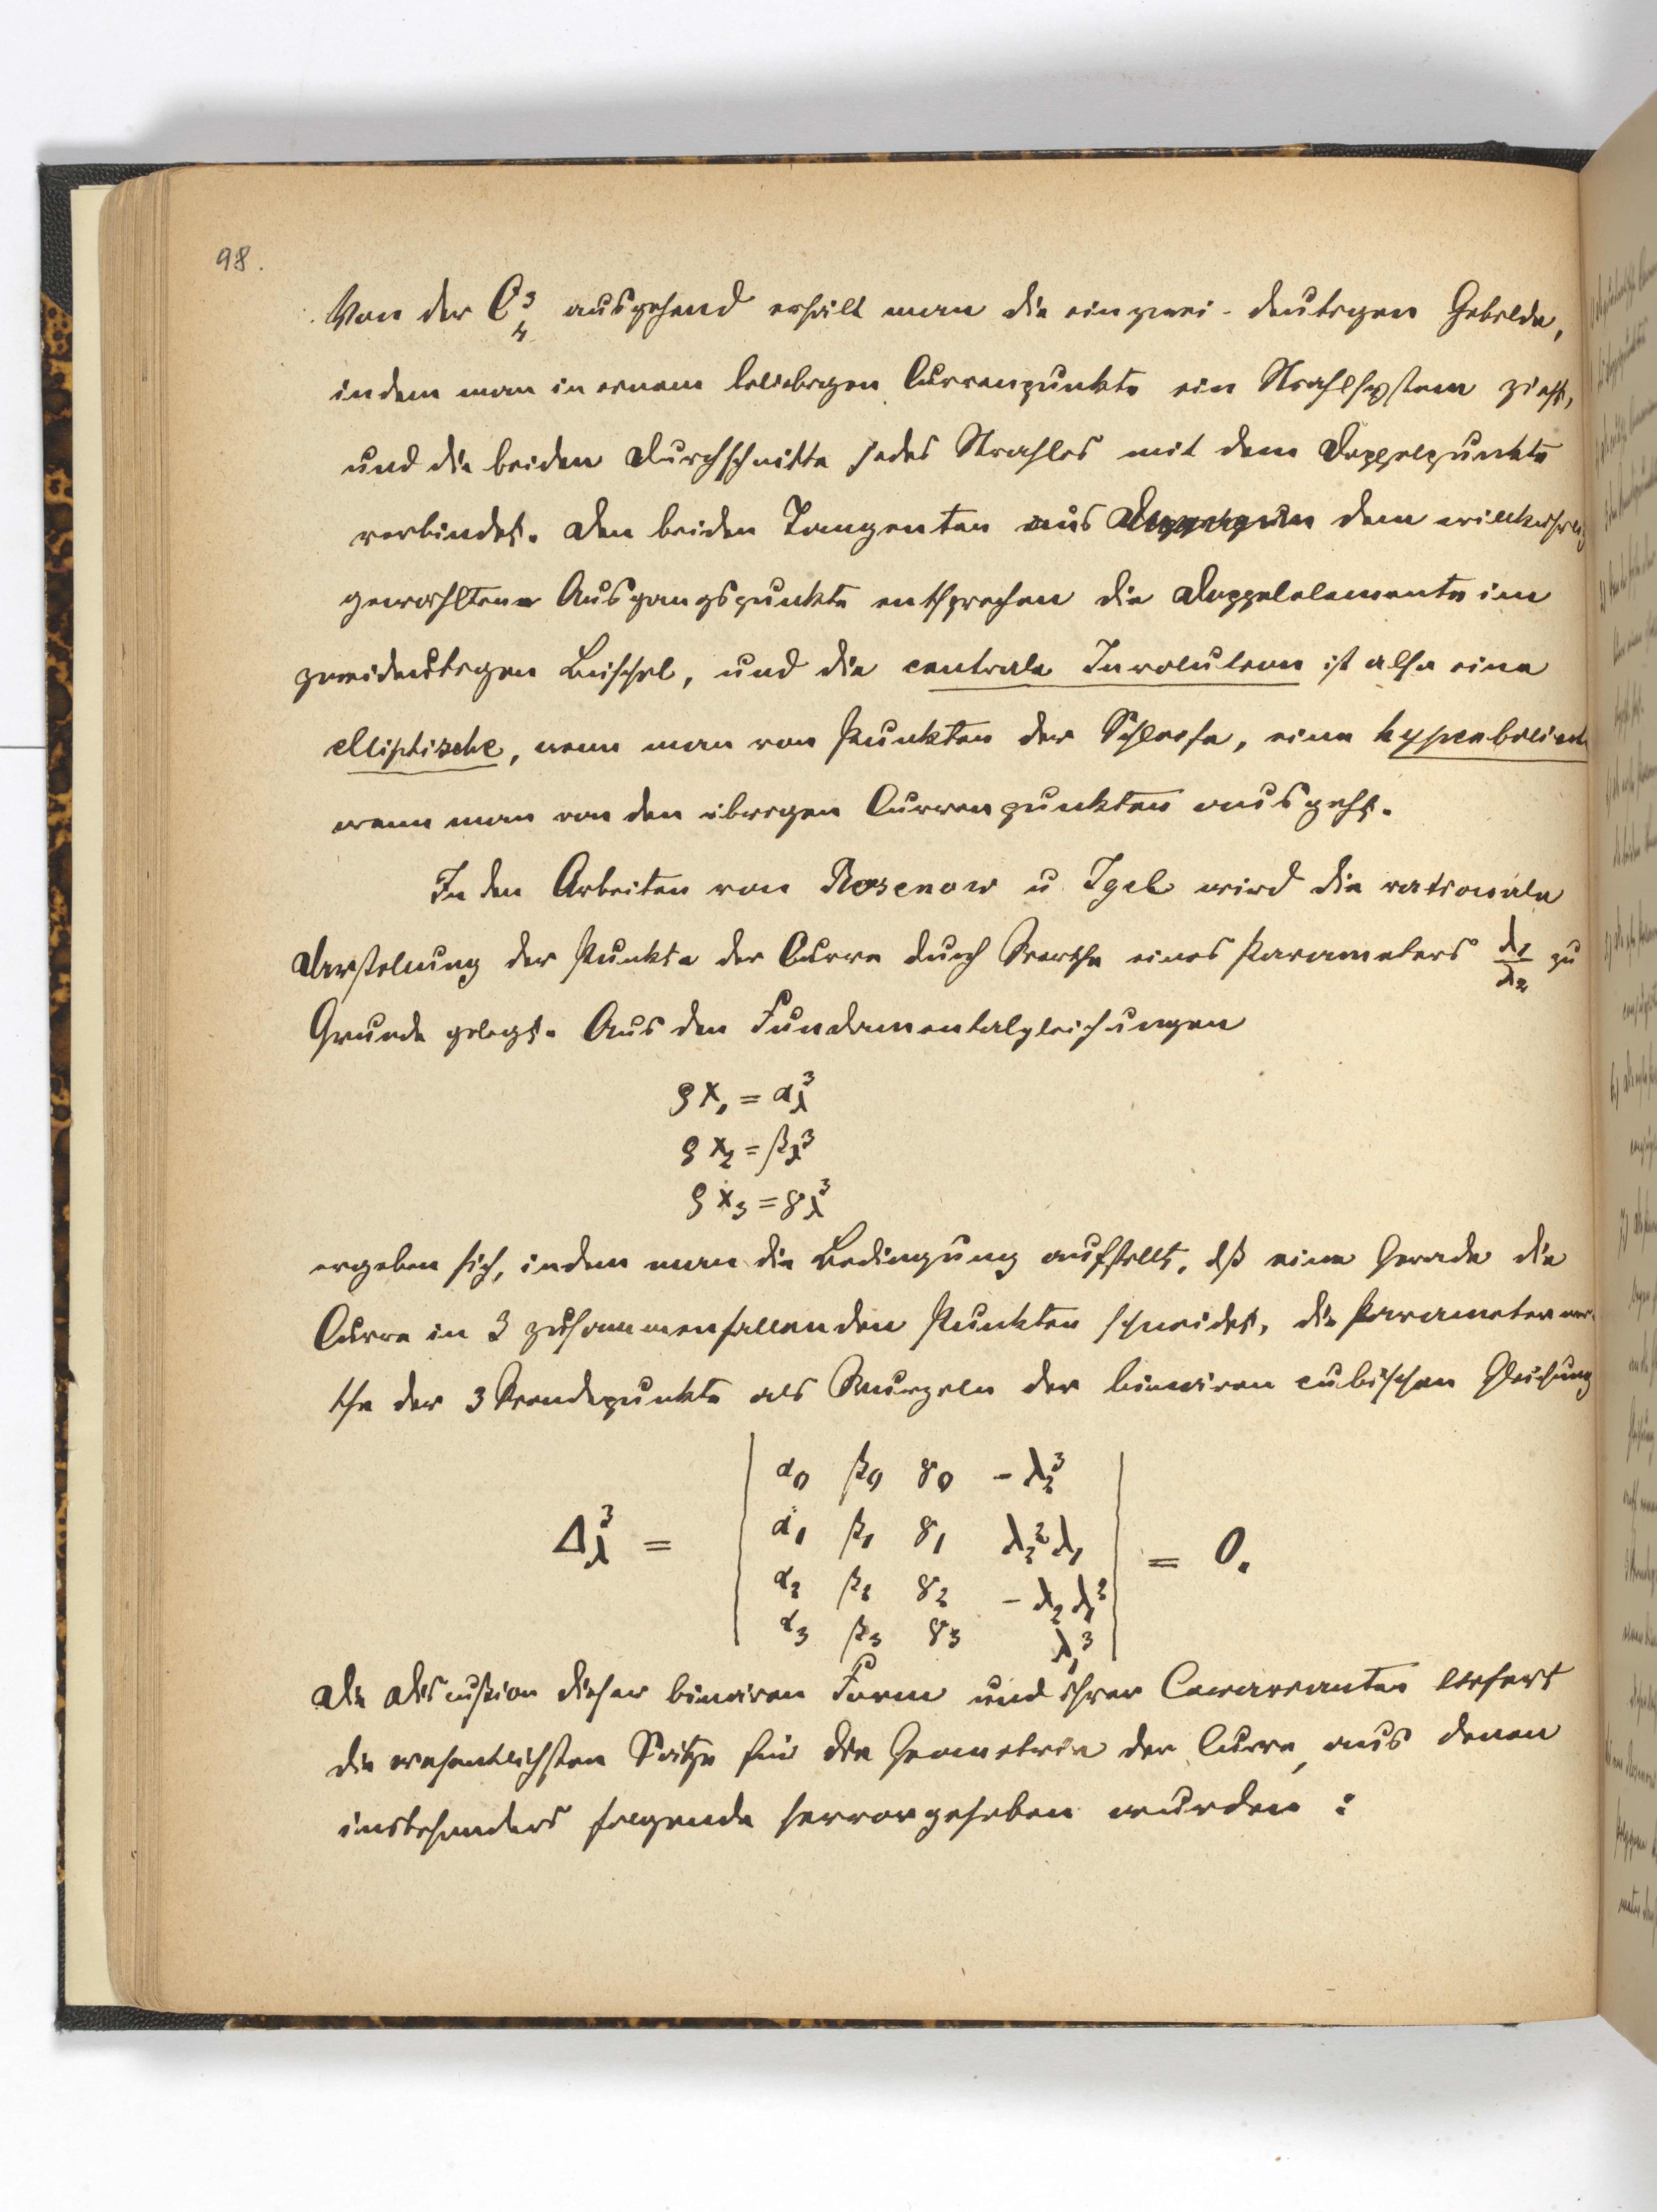 98.
Von der C³₄ ausgehend erhält man die einzwei-deutigen Gebilde,
indem man in einem beliebigen Curvenpunkte ein Strahlsystem zieht,
und die beiden Durchschnitte jedes Strahles mit dem Doppelpunkte
verbindet. Den beiden Tangenten aus dem willkührlich
gewählten Ausgangspunkte entsprechen die Doppelelemente im
zweideutigen Büschel, und die centrale Involution ist also eine
elliptische, wenn man von Punkten der Schleife, eine hyperbolische
wenn man von den übrigen Curvenpunkten ausgeht.
In den Arbeiten von Rosenow u Igel wird die rationale
Darstellung der Punkte der Curve durch Werthe eines Parameters λ₁/λ₂ zu
Grunde gelegt. Aus den Fundamentalgleichungen
ϱx₁ = α_λ³
ϱx₂ = β_λ³
ϱx₃ = γ_λ³
ergeben sich, indem man die Bedingung aufstellt, dß eine Gerade die
Curve in 3 zusammenfallenden Punkten schneidet, die Parameterwer-
the der 3 Wendepunkte als Wurzeln der binären cubischen Gleichung
α₀ β₀ γ₀ -λ₂³
α₁ β₁ γ₁ λ₂²λ₁
Δ_λ³ = = 0.
α₂ β₂ γ₂ -λ₂λ₁²
α₃ β₃ γ₃ λ₁³
Die Discussion dieser binären Form und ihrer Covarianten liefert
die wesentlichsten Sätze für die Geometrie der Curve, aus denen
insbesonders folgende hervorgehoben wurden: